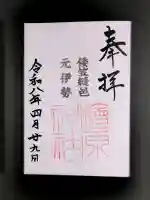 奉拝
倭笠縫邑
元伊勢
檜原神社
令和八年四月廿九日